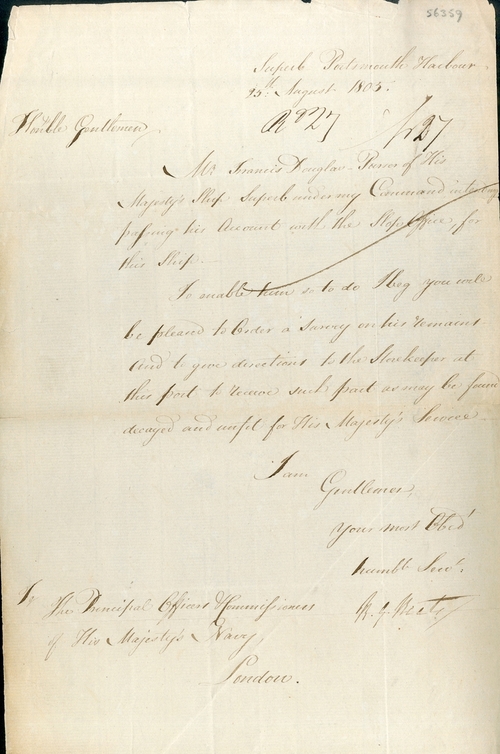 56359
Superb Portsmouth Harbour
25th August 1805.
Honble Gentlemen
R 27 27
Mr Francis Douglas Purser of His
Majesty's Ship Superb under my Command intending
passing his Account with the Slop Office, for
this Ship.
To enable him so to do I beg you will
be pleased to Order a Survey on his remains
and to give directions to the Storekeeper at
this port to receive such part as may be found
decayed and unfit for His Majesty's Service
I am
Gentlemen,
your most Obedt
humble Servt.
The Principal Officers & Commissioners
of His Majesty's Navy
London.